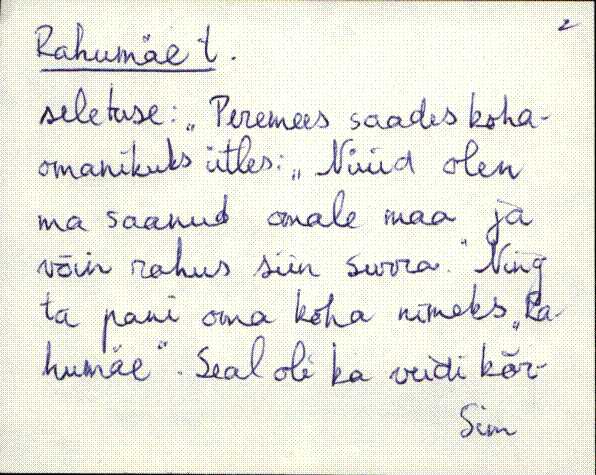 2
Rahumäe t.
seletuse: „Peremees saades koha-
omanikuks ütles: „Nüüd olen
ma saanud omale maa ja
võin rahus siin surra." Ning
ta pani oma koha nimeks „Ra-
humäe". Seal oli ka veidi kõr-
Sim